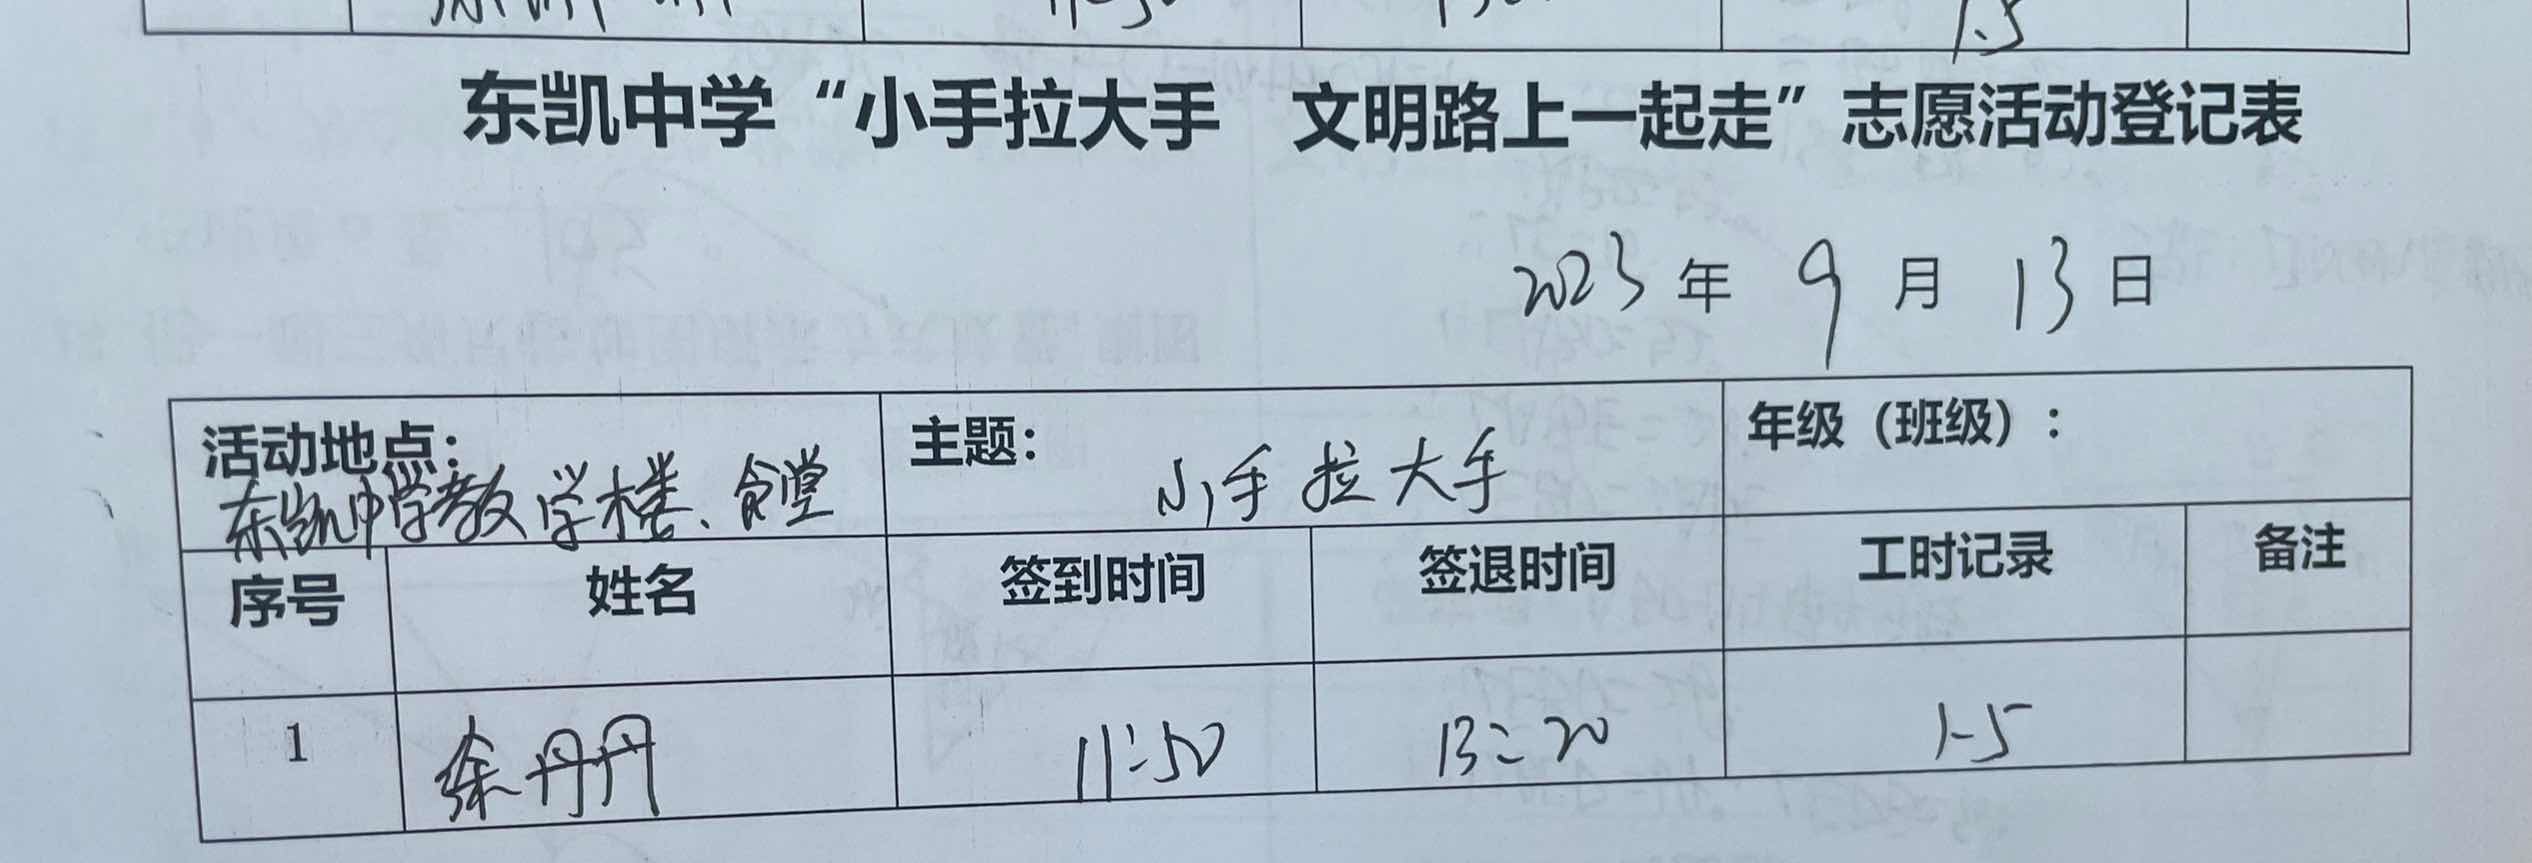 1.5
东凯中学“小手拉大手 文明路上一起走”志愿活动登记表
2023年 9月 13日
活动地点: 主题: 年级（班级）:
东凯中学教学楼、食堂 小手拉大手
序号 姓名 签到时间 签退时间 工时记录 备注
1 徐丹丹 11:50 13:20 1.5